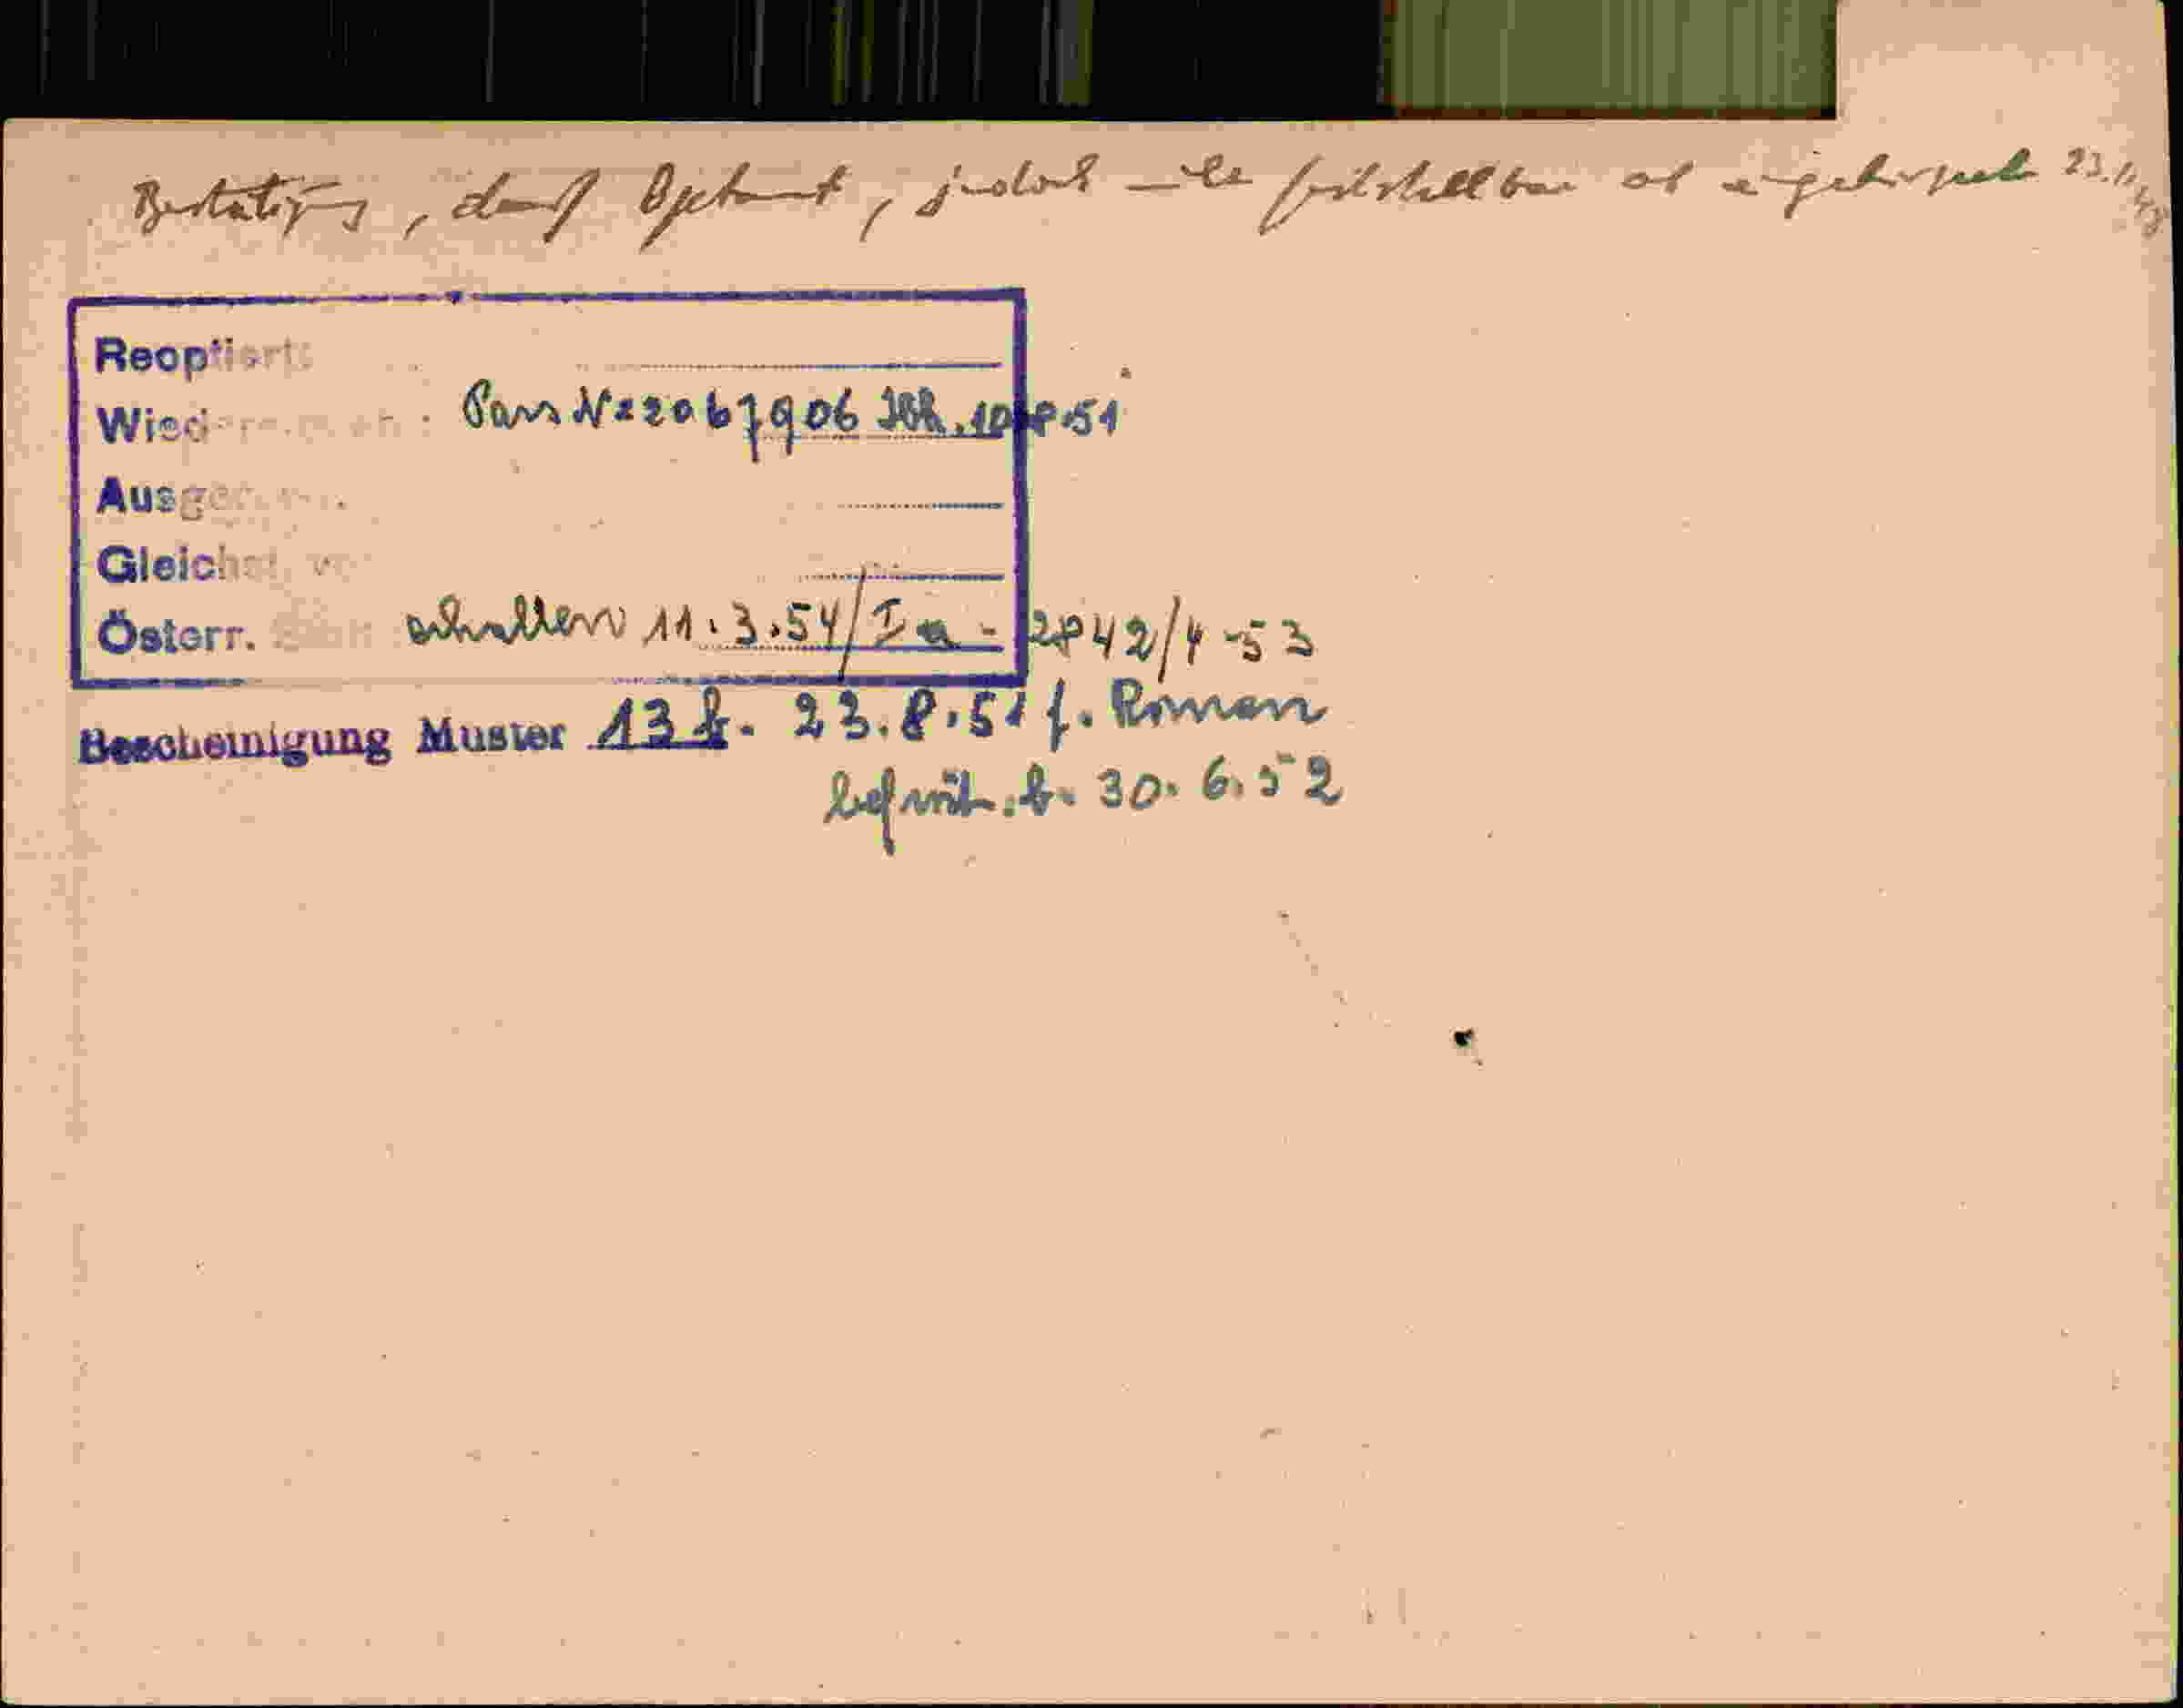 Bestätigung, daß Optant, jedoch nicht feststellbar ob eingebürgert 23.11.48
Reoptiert:
Pass Nº 2067906 Ibk. 10.8.51
Ausgew
Gleichst
Österr. erhalten 11.3.54/Ia - 2842/4-53
Bescheinigung Muster 13 b. 23.8.51 f. Roman
30.6.52